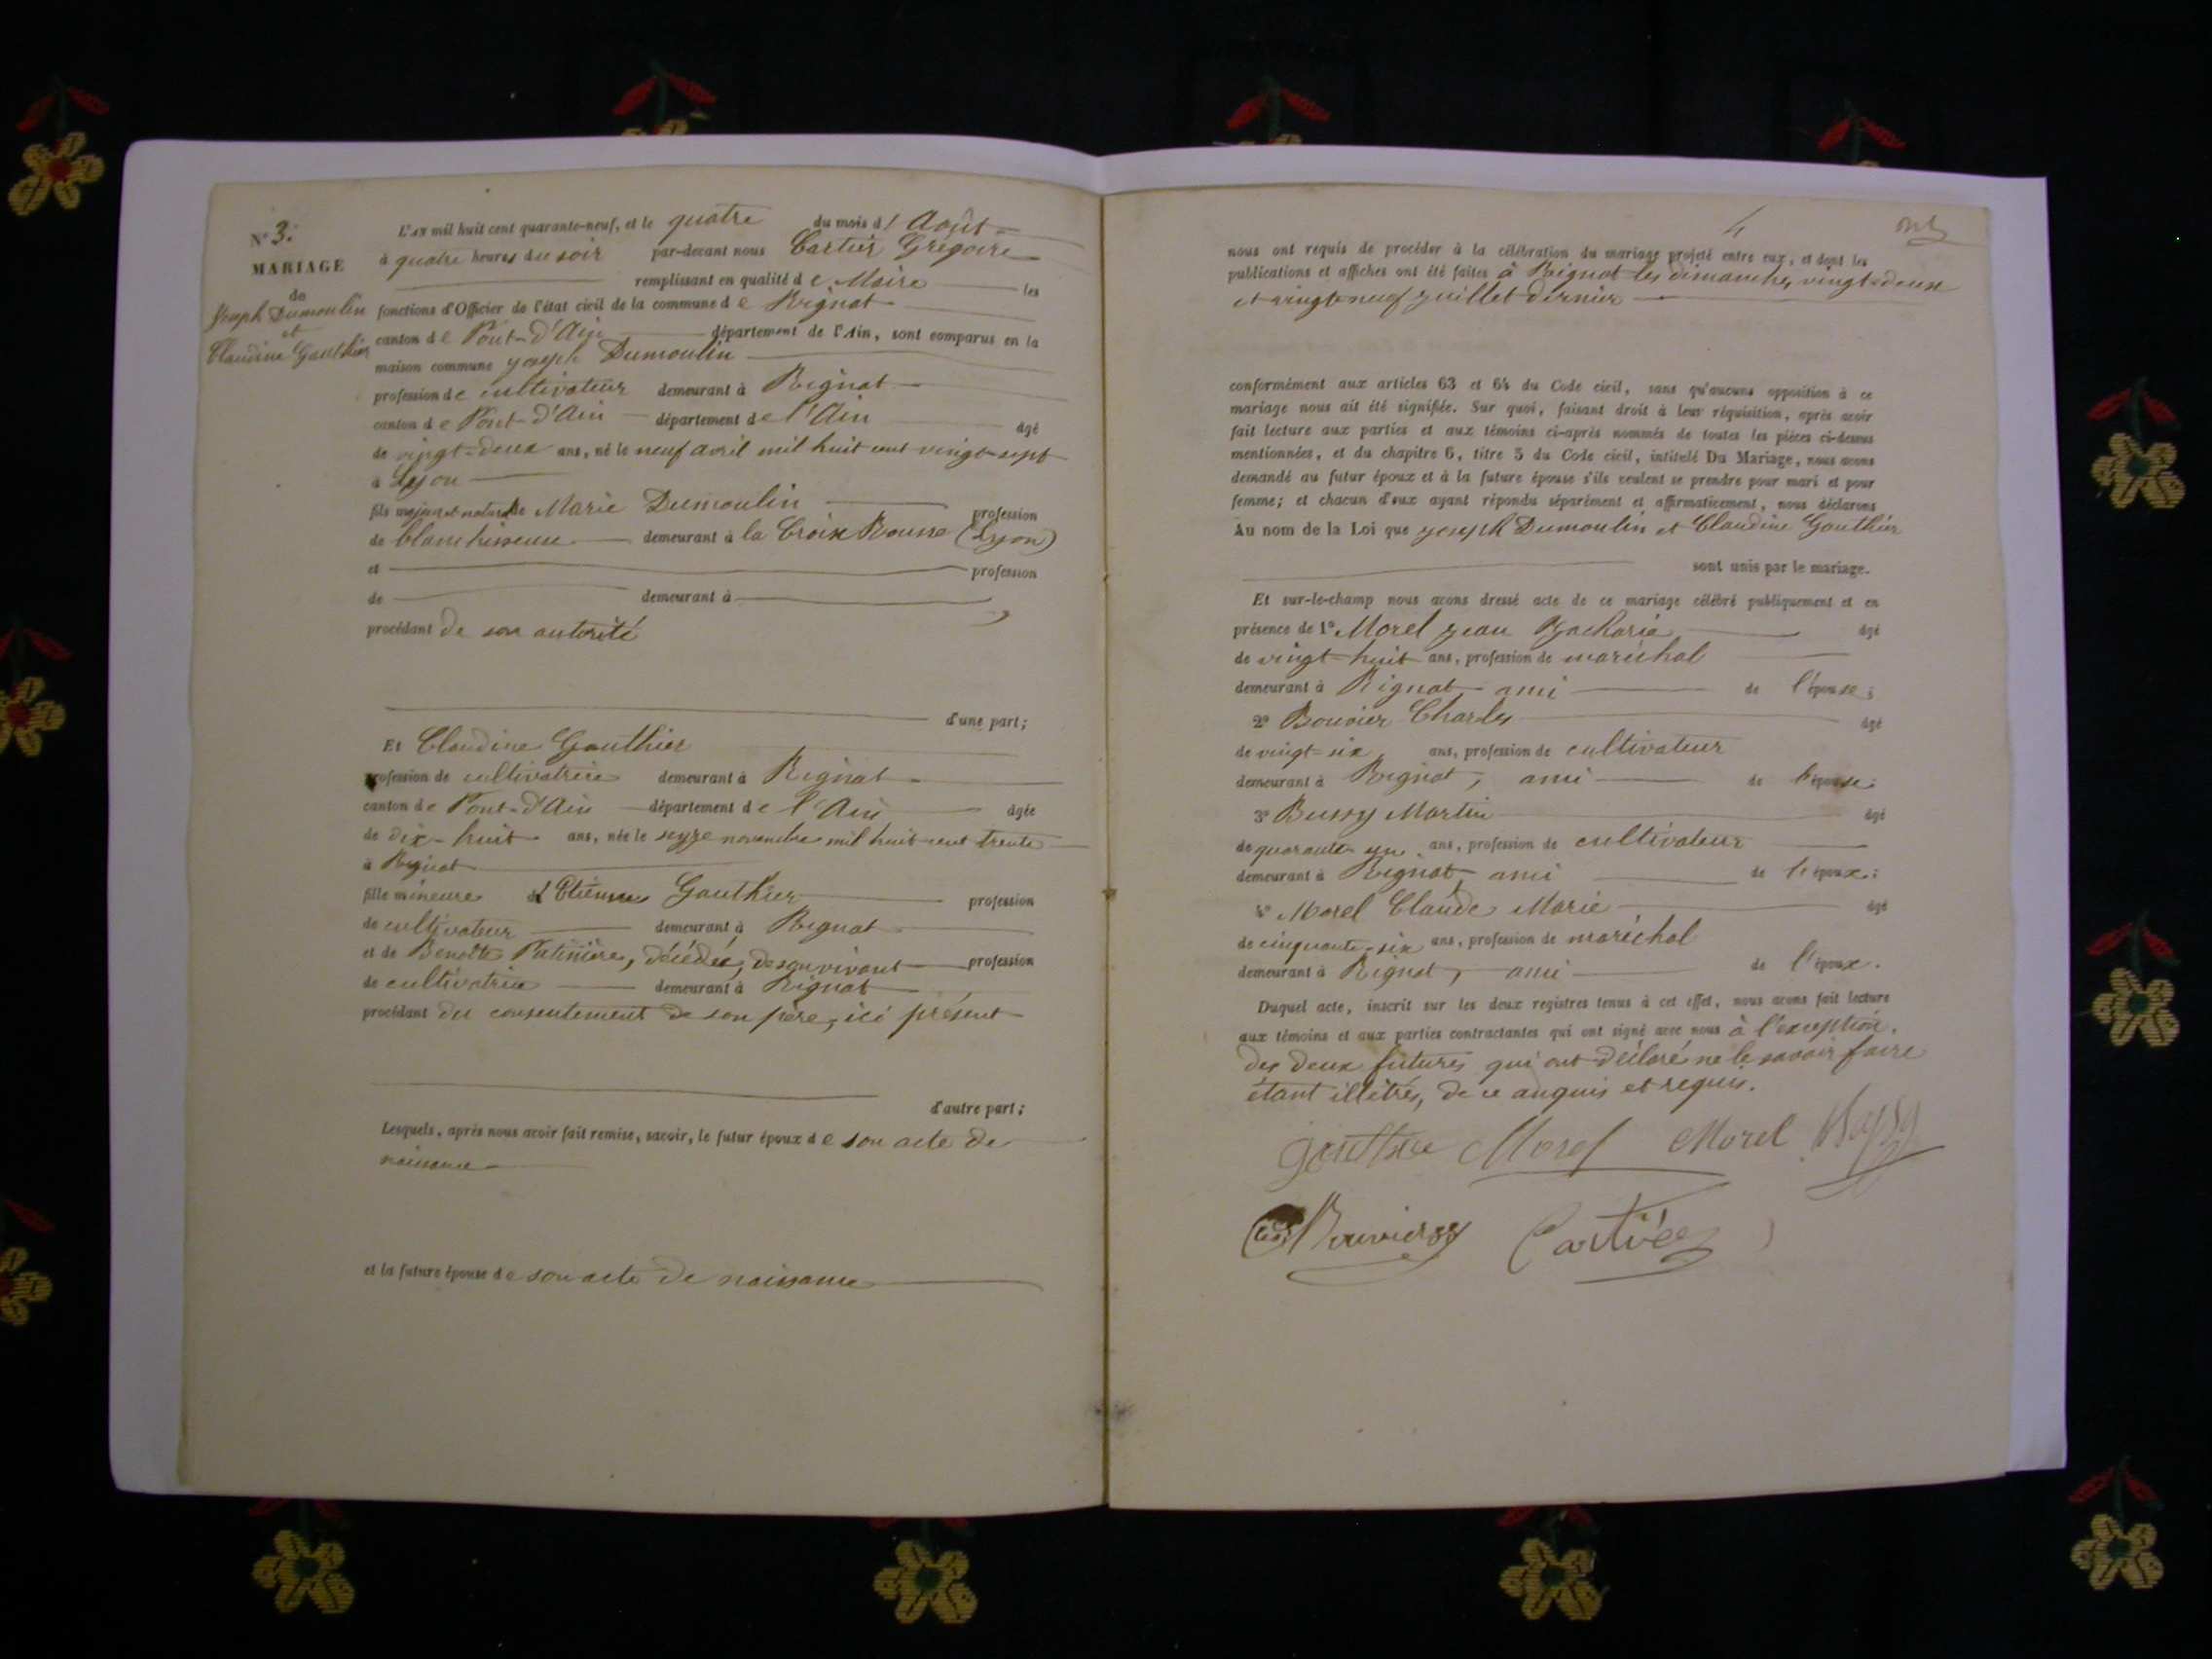 N° 3.
MARIAGE
de
Joseph Dumoulin
et
Claudine Gauthier
L'AN mil huit cent quarante-neuf, et le quatre du mois d' Août
à quatre heures du soir par-devant nous Cartier Grégoire
remplissant en qualité de Maire les
fonctions d'Officier de l'état civil de la commune de Rignat
canton de Pont-d'Ain département de l'Ain, sont comparus en la
maison commune Joseph Dumoulin
profession de cultivateur demeurant à Rignat
canton de Pont-d'Ain département de l'Ain âgé
de vingt-deux ans, né le neuf avril mil huit cent vingt-sept
à Lyon
fils majeur et naturel de Marie Dumoulin profession
de blanchisseuse demeurant à la Croix Rousse (Lyon)
et profession
de demeurant à
procédant de son autorité
d'une part;
Et Claudine Gauthier
profession de cultivatrice demeurant à Rignat
canton de Pont-d'Ain département de l'Ain âgée
de dix-huit ans, née le seize novembre mil huit cent trente
à Rignat
fille mineure d'Etienne Gauthier profession
de cultivateur demeurant à Rignat
et de Benoîte décédée, de son vivant profession
de cultivatrice demeurant à Rignat
procédant du consentement de son père, ici présent
d'autre part;
Lesquels, après nous avoir fait remise, savoir, le futur époux de son acte de
naissance
et la future épouse de son acte de naissance
4
nous ont requis de procéder à la célébration du mariage projeté entre eux, et dont les
publications et affiches ont été faites à Rignat les dimanches vingt-deux
et vingt-neuf juillet dernier
conformément aux articles 63 et 64 du Code civil, sans qu'aucune opposition à ce
mariage nous ait été signifiée. Sur quoi, faisant droit à leur réquisition, après avoir
fait lecture aux parties et aux témoins ci-après nommés de toutes les pièces ci-dessus
mentionnées, et du chapitre 6, titre 5 du Code civil, intitulé Du Mariage, nous avons
demandé au futur époux et à la future épouse s'ils veulent se prendre pour mari et pour
femme; et chacun d'eux ayant répondu séparément et affirmativement, nous déclarons
Au nom de la Loi que Joseph Dumoulin et Claudine Gauthier
sont unis par le mariage.
Et sur-le-champ nous avons dressé acte de ce mariage célébré publiquement et en
présence de 1° Morel Jean Zacharie âgé
de vingt-huit ans, profession de maréchal
demeurant à Rignat ami de l'épouse;
2° Bouvier Charles âgé
de vingt-six ans, profession de cultivateur
demeurant à Rignat, ami de l'épouse;
3° Bussy Martin âgé
de quarante-un ans, profession de cultivateur
demeurant à Rignat, ami de l'époux;
4° Morel Claude Marie âgé
de cinquante-six ans, profession de maréchal
demeurant à Rignat, ami de l'époux.
Duquel acte, inscrit sur les deux registres tenus à cet effet, nous avons fait lecture
aux témoins et aux parties contractantes qui ont signé avec nous à l'exception
des deux futures qui ont déclaré ne le savoir faire
étant illétrés, de ce enquis et requis.
Morel Morel
Bouvier Cartier